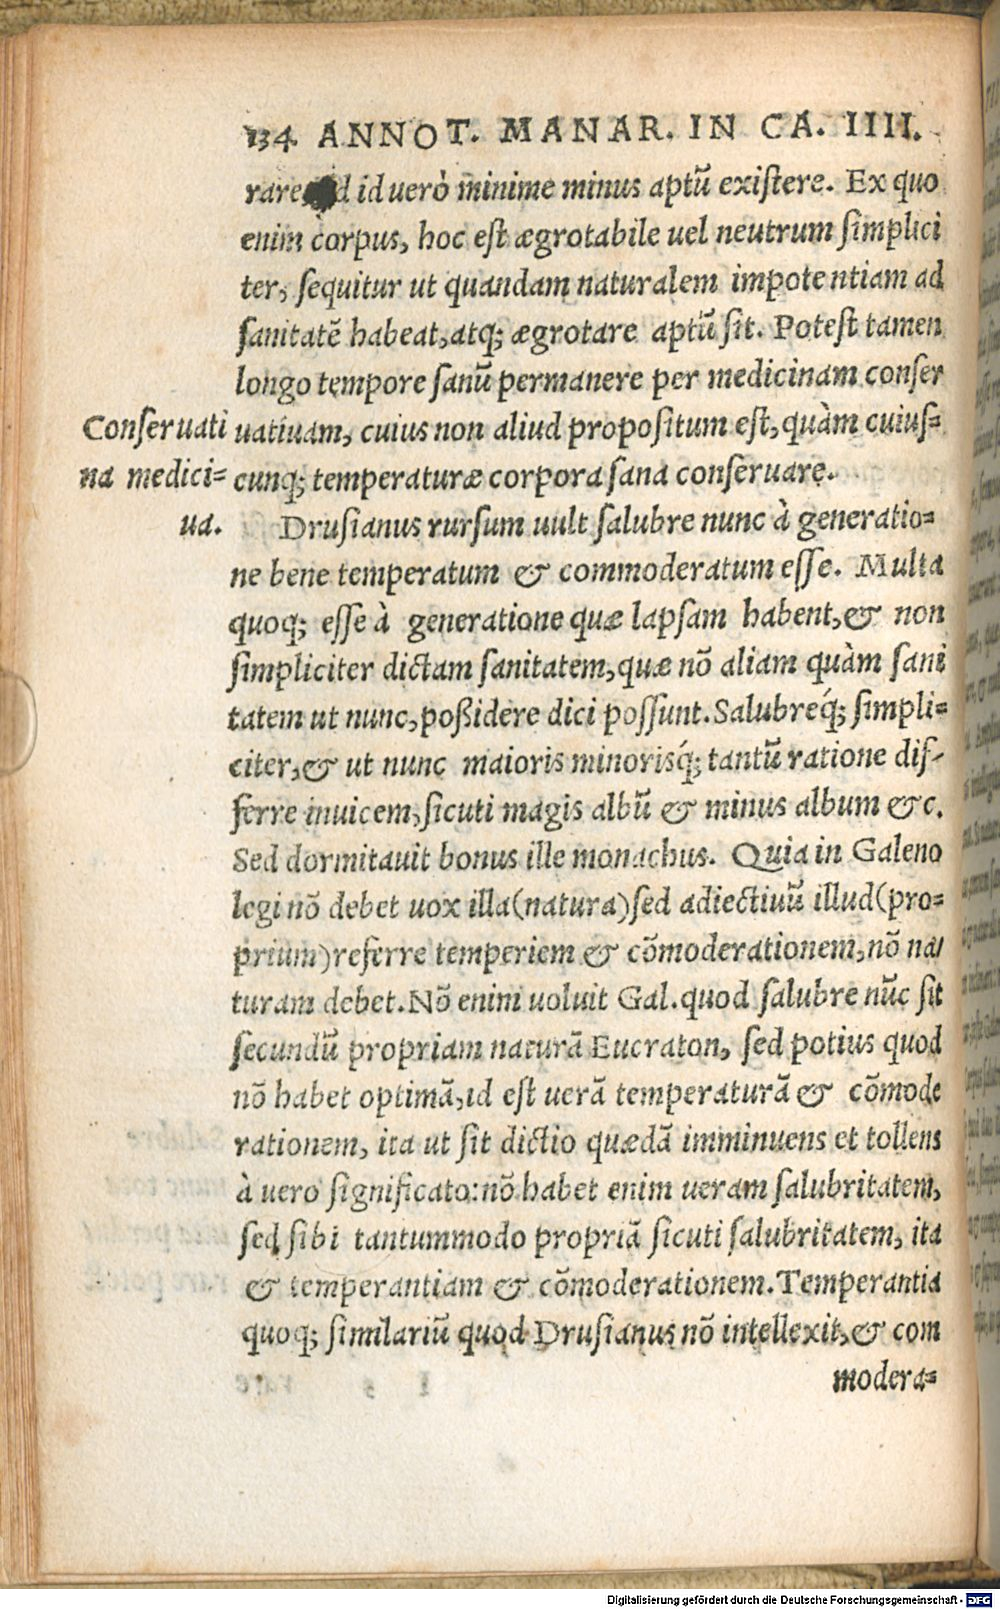 134 ANNOT. MANAR. IN CA. IIII.
rare, id uerò minime minus aptũ exiſtere. Ex quo
enim corpus, hoc eſt ægrotabile uel neutrum ſimplici
ter, ſequitur ut quandam naturalem impotentiam ad
ſanitatẽ habeat, atq; ægrotare aptũ ſit. Poteſt tamen
longo tempore ſanũ permanere per medicinam conſer
uatiuam, cuius non aliud propoſitum eſt, quàm cuiuſ=
cunq; temperaturæ corpora sana conſeruare.
Conſeruati
na medici=
ua.
Druſianus rurſum uult ſalubre nunc à generatio=
ne bene temperatum & commoderatum eſſe. Multa
quoq; eſſe à generatione quæ lapſam habent, & non
ſimpliciter dictam ſanitatem, quæ nõ aliam quàm ſani
tatem ut nunc, poßidere dici poſſunt. Salubreq́; ſimpli=
citer, & ut nunc maioris minorisq́; tantũ ratione dif-
ferre inuicem, ſicuti magis albũ & minus album &c.
Sed dormitauit bonus ille monachus. Quia in Galeno
legi nõ debet uox illa (natura) ſed adiectiuũ illud (pro=
prium) referre temperiem & cõmoderationem, nõ na/
turam debet. Nõ enim uoluit Gal. quod ſalubre nũc ſit
ſecundũ propriam naturã Eucraton, ſed potius quod
nõ habet optimã, id eſt uerã temperaturã & cõmode
rationem, ita ut ſit dictio quædã imminuens et tollens
à uero ſignificato: nõ habet enim ueram ſalubritatem,
ſed ſibi tantummodo propriã ſicuti ſalubritatem, ita
& temperantiam & cõmoderationem. Temperantia
quoq; ſimilariũ quod Druſianus nõ intellexit, & com
modera=
Digitalisierung gefördert durch die Deutsche Forschungsgemeinschaft - DFG